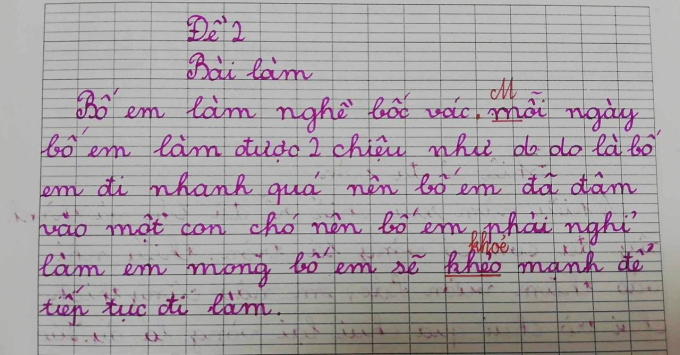 Đề 2
Bài làm
Bố em làm nghề bốc vác. M mỗi ngày
bố em làm được 2 chiệu như do do là bố
em đi nhanh quá nên bố em đã đâm
vào một con chó nên bố em phải nghỉ
khoẻ
làm em mong bố em sẽ khẻo mạnh để
tiếp tục đi làm.